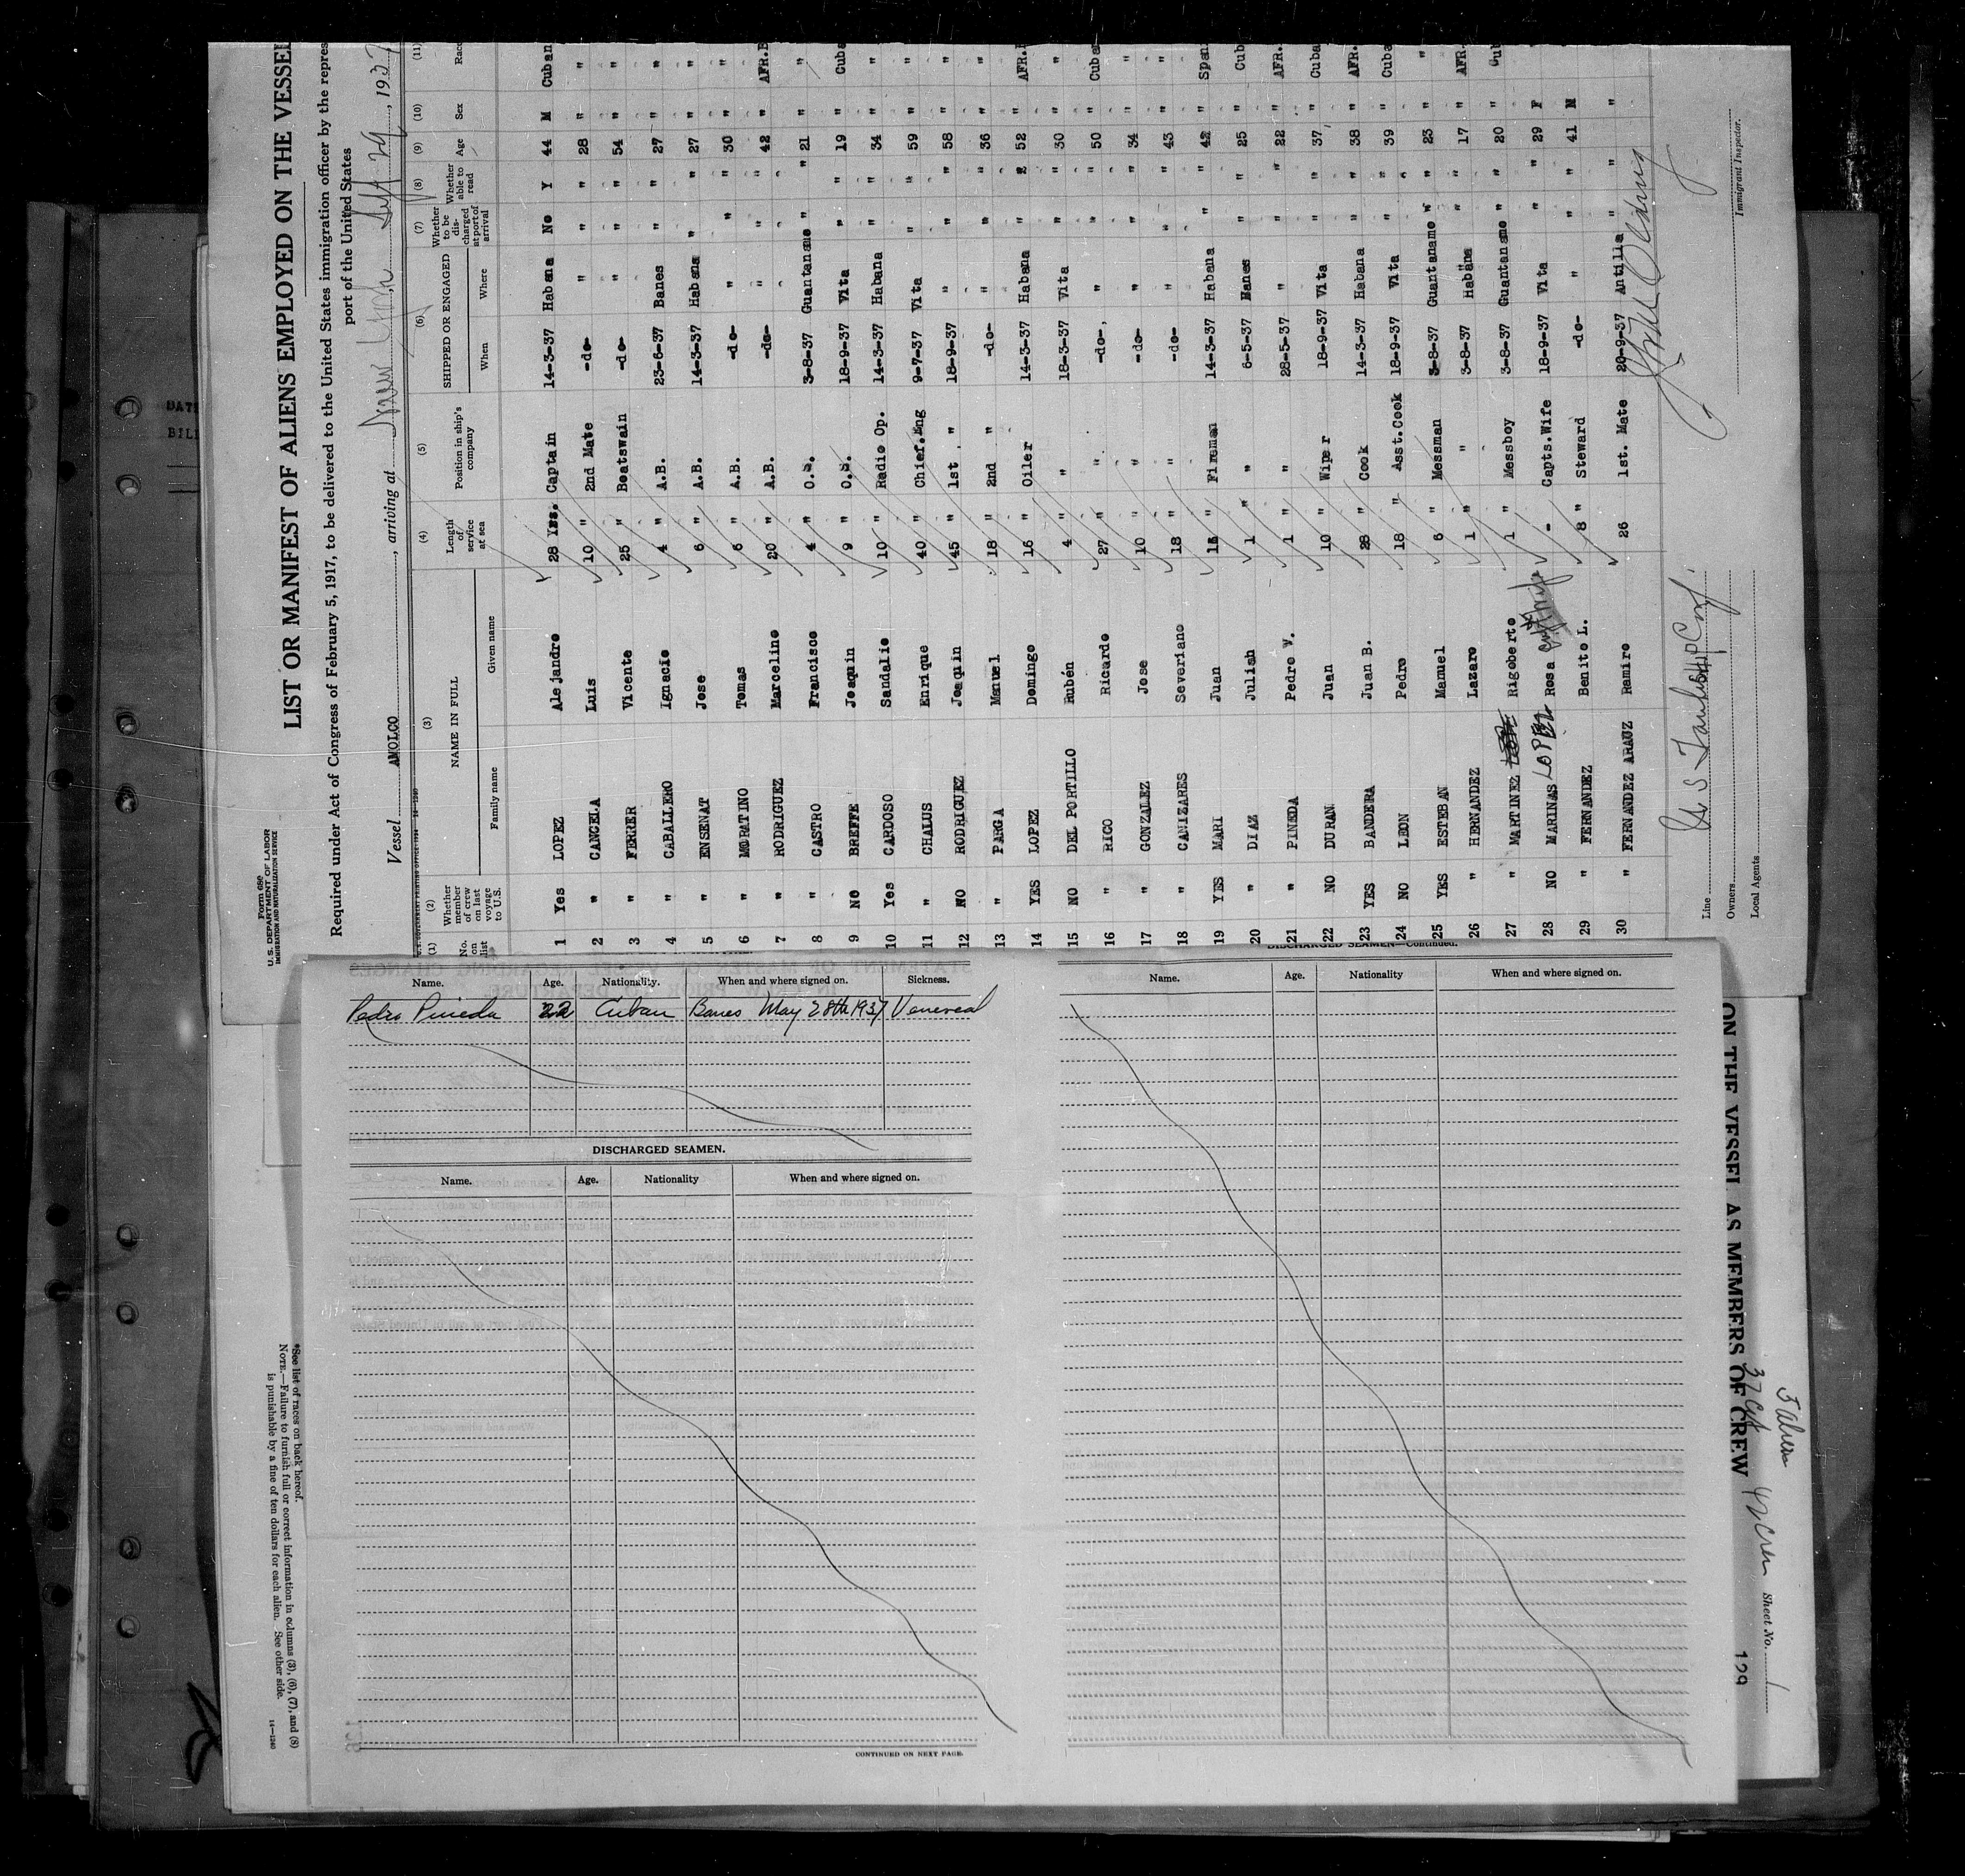 Form 680
U. S. DEPARTMENT OF LABOR
IMMIGRATION AND NATURALIZATION SERVICE
LIST OR MANIFEST OF ALIENS EMPLOYED ON THE VESSEL
Required under Act of Congress of February 5, 1917, to be delivered to the United States immigration officer by the repres
port of the United States
Vessel AMOLCO, arriving at New York Sept 29, 1937
(1) (2) (3) (4) (5) (6) (7) (8) (9) (10) (11)
No. on list Whether member of crew on last voyage to U.S. NAME IN FULL Length of service at sea Position in ship's company SHIPPED OR ENGAGED Whether to be discharged at port of arrival Whether able to read Age Sex Race
Family name Given name When Where
1 Yes LOPEZ Alejandro 28 Yrs. Captain 14-3-37 Habana No Y 44 M Cuban
2 " CANCELA Luis 10 " 2nd Mate -do- " " " 28 " "
3 " FERRER Vicente 25 " Boatswain -do- " " " 54 " "
4 " CABALLERO Ignacio 4 " A.B. 23-6-37 Banes " " 27 " "
5 " ENSENAT Jose 6 " A.B. 14-3-37 Habana " " 27 " "
6 " MORATINO Tomas 6 " A.B. -do- " " " 30 " "
7 " RODRIGUEZ Marcelino 20 " A.B. -do- " " " 42 " AFR.B
8 " CASTRO Francisco 4 " O.S. 3-8-37 Guantanamo " " 21 " "
9 No BREFFE Joaquin 9 " O.S. 18-9-37 Vita " " 19 " Cuba
10 Yes CARDOSO Sandalio 10 " Radio Op. 14-3-37 Habana " " 34 " "
11 " CHALUS Enrique 40 " Chief.Eng 9-7-37 Vita " " 59 " "
12 NO RODRIGUEZ Joaquin 45 " 1st. " 18-9-37 " " " 58 " "
13 " PARGA Manuel 18 " 2nd " -do- " " " 36 " "
14 YES LOPEZ Domingo 16 " Oiler 14-3-37 Habana " " 52 " AFR.
15 NO DEL PORTILLO Rubén 4 " " 18-3-37 Vita " " 30 " "
16 " RICO Ricardo 27 " " -do-, " " " 50 " Cuba
17 " GONZALEZ Jose 10 " " -do- " " " 34 " "
18 " CANIZARES Severiano 18 " " -do- " " " 43 " "
19 YES MARI Juan 15 " Fireman 14-3-37 Habana " " 42 " Span
20 " DIAZ Julish 1 " " 6-5-37 Banes " " 25 " Cub
21 " PINEDA Pedro V. 1 " " 28-5-37 " " " 22 " AFR.
22 NO DURAN Juan 10 " Wiper 18-9-37 Vita " " 37 " Cuba
23 YES BANDERA Juan B. 28 " Cook 14-3-37 Habana " " 38 " AFR.
24 NO LEON Pedro 18 " Asst.cook 18-9-37 Vita " " 39 " Cuba
25 YES ESTEBAN Manuel 6 " Messman 3-8-37 Guantanamo " " 23 " "
26 " HERNANDEZ Lazaro 1 " " 3-8-37 Habana " " 17 " AFR.
27 " MARTINEZ Rigoberto 1 " Messboy 3-8-37 Guantanamo " " 20 " Cu
28 NO MARINAS LOPEZ Rosa - Capts.Wife 18-9-37 Vita " " 29 F
29 " FERNANDEZ Benito L. 8 " Steward -do- " " " 41 M
30 " FERNANDEZ ARAUZ Ramiro 26 1st. Mate 20-9-37 Antilla " " "
Line
Owners
Local Agents
Immigrant Inspector.
DISCHARGED SEAMEN—Continued.
Name. Age. Nationality. When and where signed on. Sickness.
Pedro Pineda 22 Cuban Banes May 28th 1937 Venereal
DISCHARGED SEAMEN.
Name. Age. Nationality When and where signed on.
CONTINUED ON NEXT PAGE.
Name. Age. Nationality When and where signed on.
ON THE VESSEL AS MEMBERS OF CREW
5 Alien
42 Crew
Sheet No. 1
129
*See list of races on back hereof.
NOTE.—Failure to furnish full or correct information in columns (3), (6), (7), and (8)
is punishable by a fine of ten dollars for each alien. See other side.
14—1240